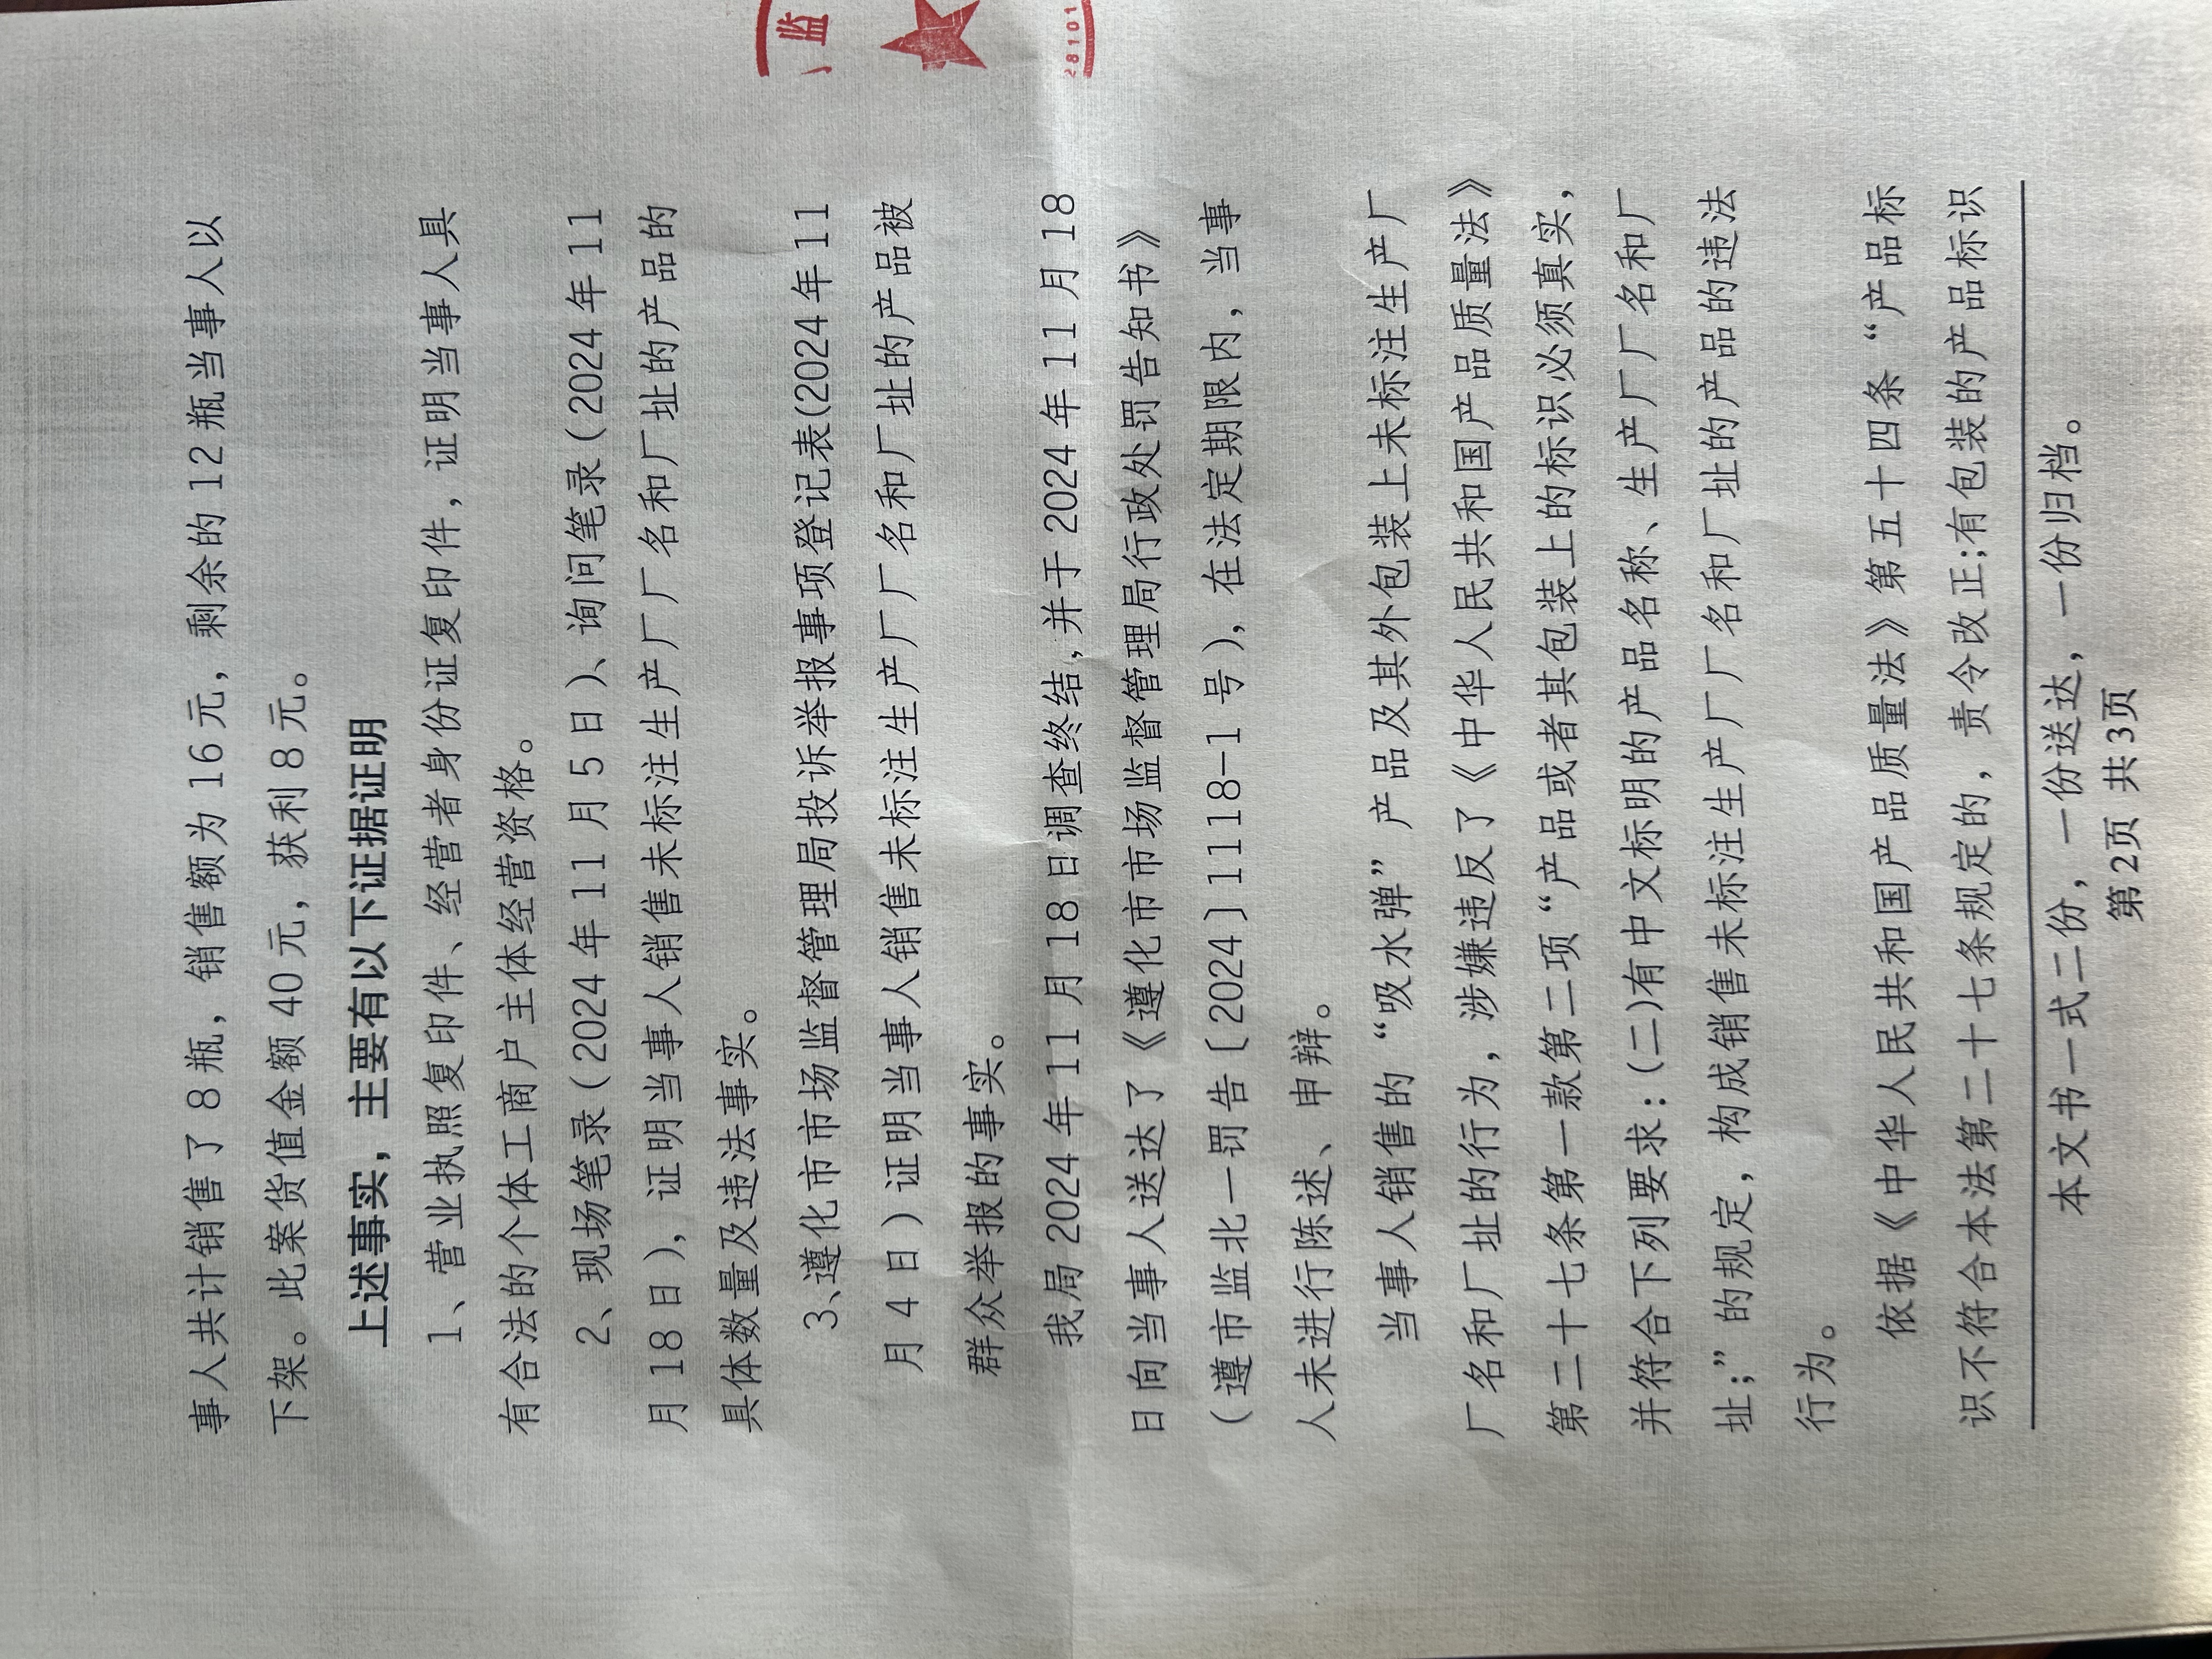 事人共计销售了 8 瓶，销售额为 16 元，剩余的 12 瓶当事人以
下架。此案货值金额 40 元，获利 8 元。
上述事实，主要有以下证据证明
1、营业执照复印件、经营者身份证复印件，证明当事人具
有合法的个体工商户主体经营资格。
2、现场笔录（2024 年 11 月 5 日）、询问笔录（2024 年 11
月 18 日），证明当事人销售未标注生产厂厂名和厂址的产品的
具体数量及违法事实。
3、遵化市市场监督管理局投诉举报事项登记表(2024 年 11
月 4 日）证明当事人销售未标注生产厂厂名和厂址的产品被
群众举报的事实。
我局 2024 年 11 月 18 日调查终结，并于 2024 年 11 月 18
日向当事人送达了《遵化市市场监督管理局行政处罚告知书》
（遵市监北一罚告〔2024〕1118-1 号），在法定期限内，当事
人未进行陈述、申辩。
当事人销售的“吸水弹”产品及其外包装上未标注生产厂
厂名和厂址的行为，涉嫌违反了《中华人民共和国产品质量法》
第二十七条第一款第二项“产品或者其包装上的标识必须真实，
并符合下列要求：(二)有中文标明的产品名称、生产厂厂名和厂
址；”的规定，构成销售未标注生产厂厂名和厂址的产品的违法
行为。
依据《中华人民共和国产品质量法》第五十四条“产品标
识不符合本法第二十七条规定的，责令改正；有包装的产品标识
本文书一式二份，一份送达，一份归档。
第 2页 共 3页
监
28101